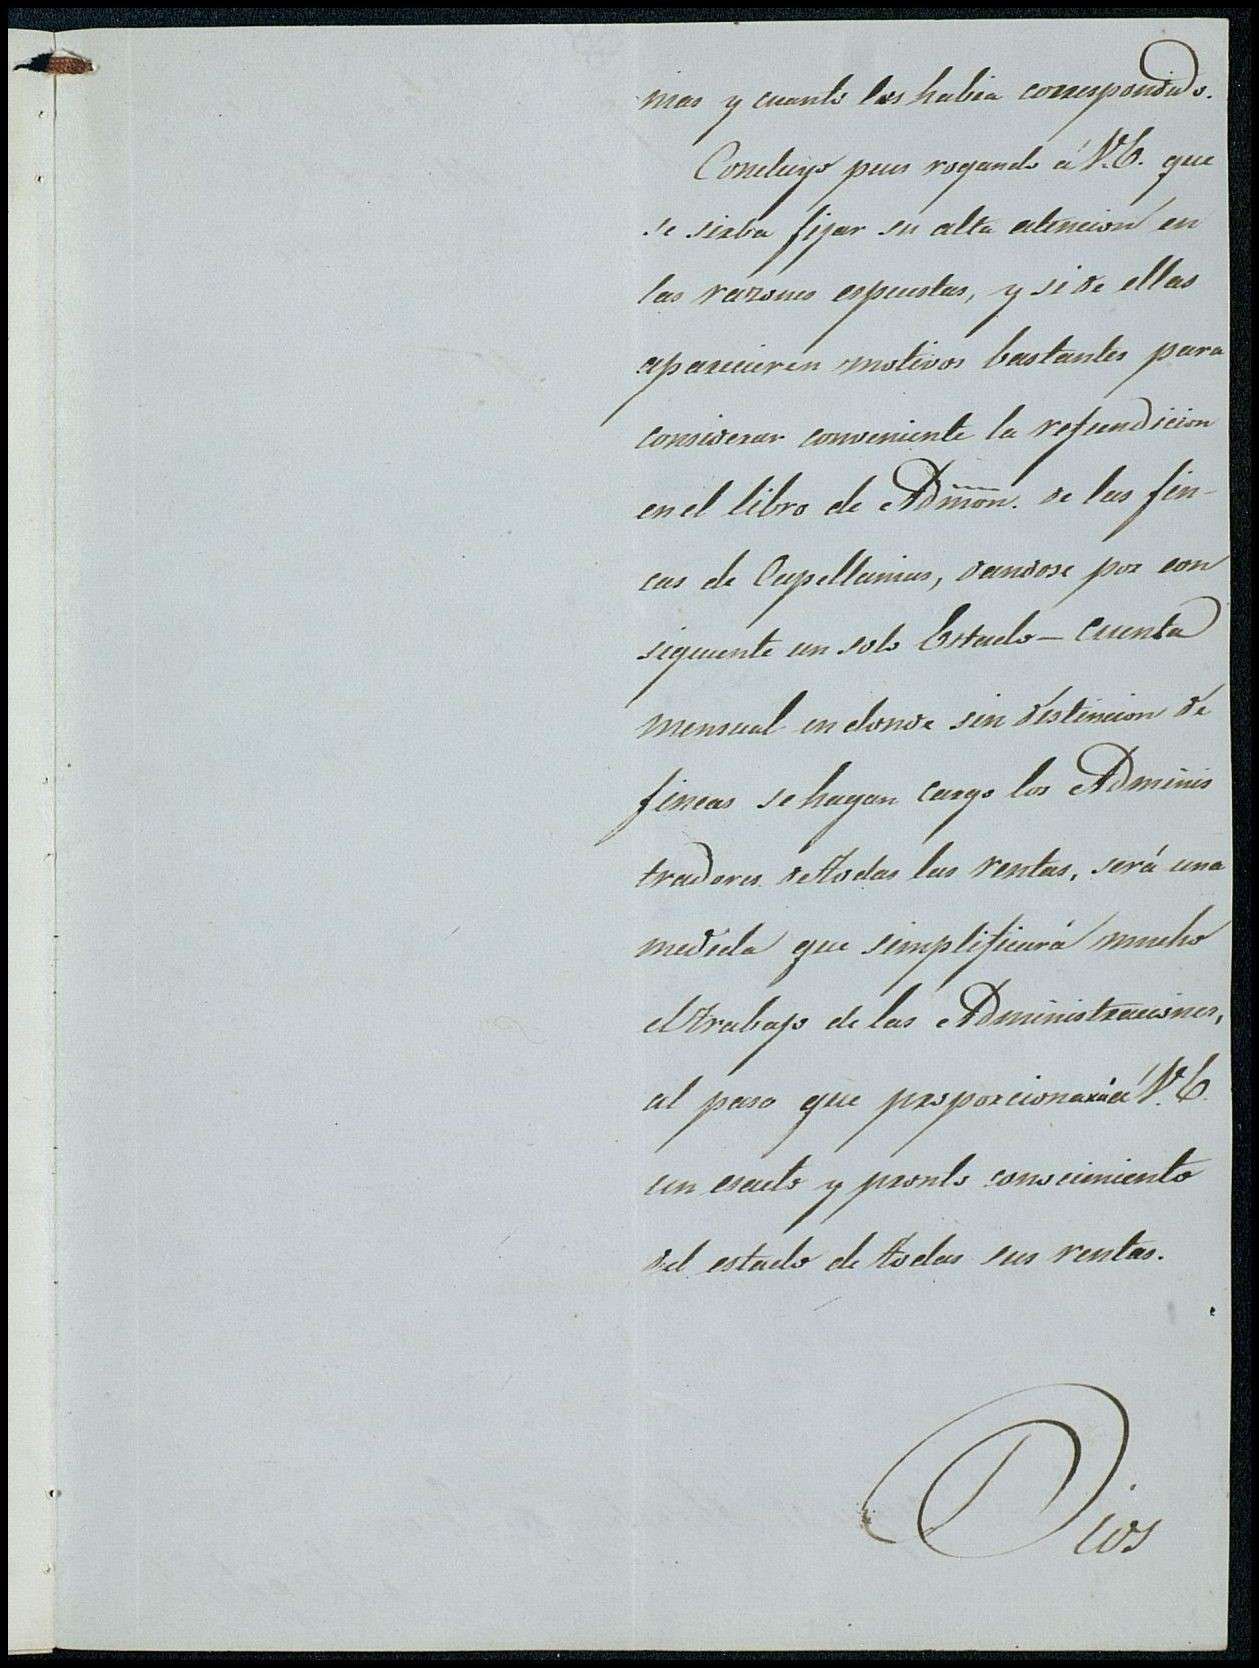 mas y cuanto les habia correspondido.
Concluyo pues rogando á V. E. que
se sirba fijar su alta atencion en
las razones espuestas, y si de ellas
aparecieren motivos bastantes para
considerar conveniente la refundicion
en el libro de Admon. de las fin-
cas de Capellanias, dandose por con
siguiente un solo Estado-cuenta
mensual en donde sin distincion de
fincas se hagan cargo los Adminis
tradores de todas las rentas, será una
medida que simplificará mucho
el trabajo de las Administraciones,
al paso que proporcionará á V. E.
un esacto y pronto conocimiento
del estado de todas sus rentas.
Dios